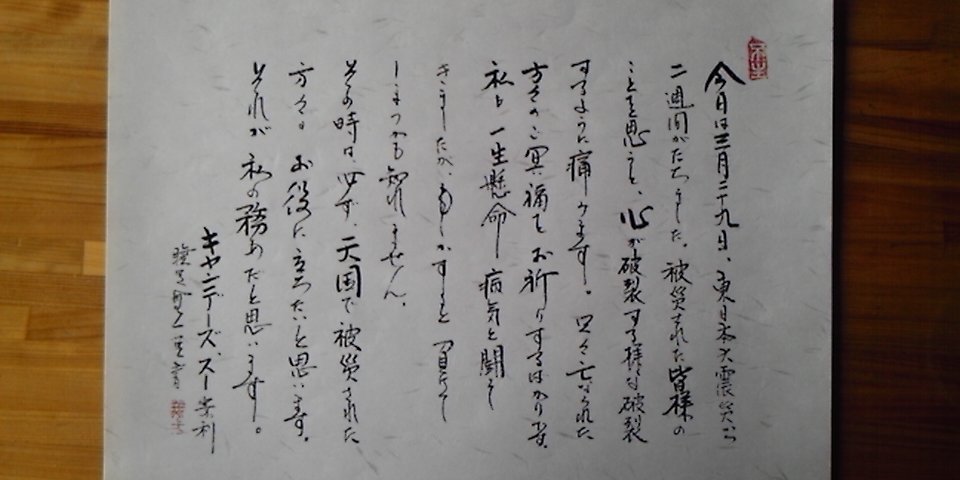 今日は三月二十九日、東日本大震災から
二週間がたちました。被災された皆様の
ことを思うと、心が破裂する様な破裂
するように痛みます。只々亡くなられた
方々のご冥福をお祈りするばかりです。
私も一生懸命病気と闘って
きましたが、もしかすると負けて
しまうかも知れません。
その時は、必ず、天国で被災された
方々の お役に立ちたいと思います。
それが私の務めだと思います。
キャンディーズ、スー